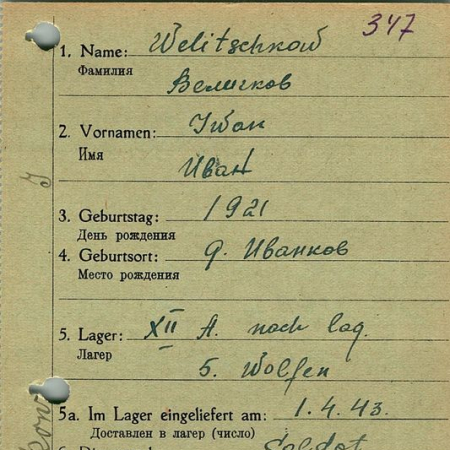 347
1. Name: Welitschkow
Фамилия
Величков
2. Vornamen: Iwan
Имя
Иван
3. Geburtstag: 1921
День рождения
4. Geburtsort: д. Иванков
Место рождения
5. Lager: XII A. nach lag.
Лагерь
5. Wolfen
5a. Im Lager eingeliefert am: 1.4.43.
Доставлен в лагерь (число)
Soldat